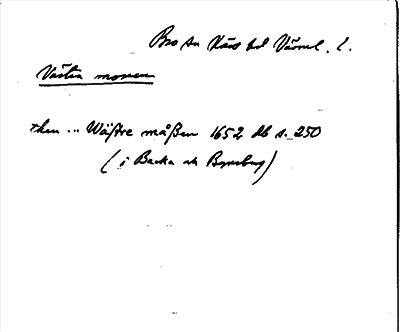 Bro sn Näs hd Värml. l.
Västra mossen
then ... Wäßtre måßen 1652 Db s. 250
(i Backa och Byneberg)